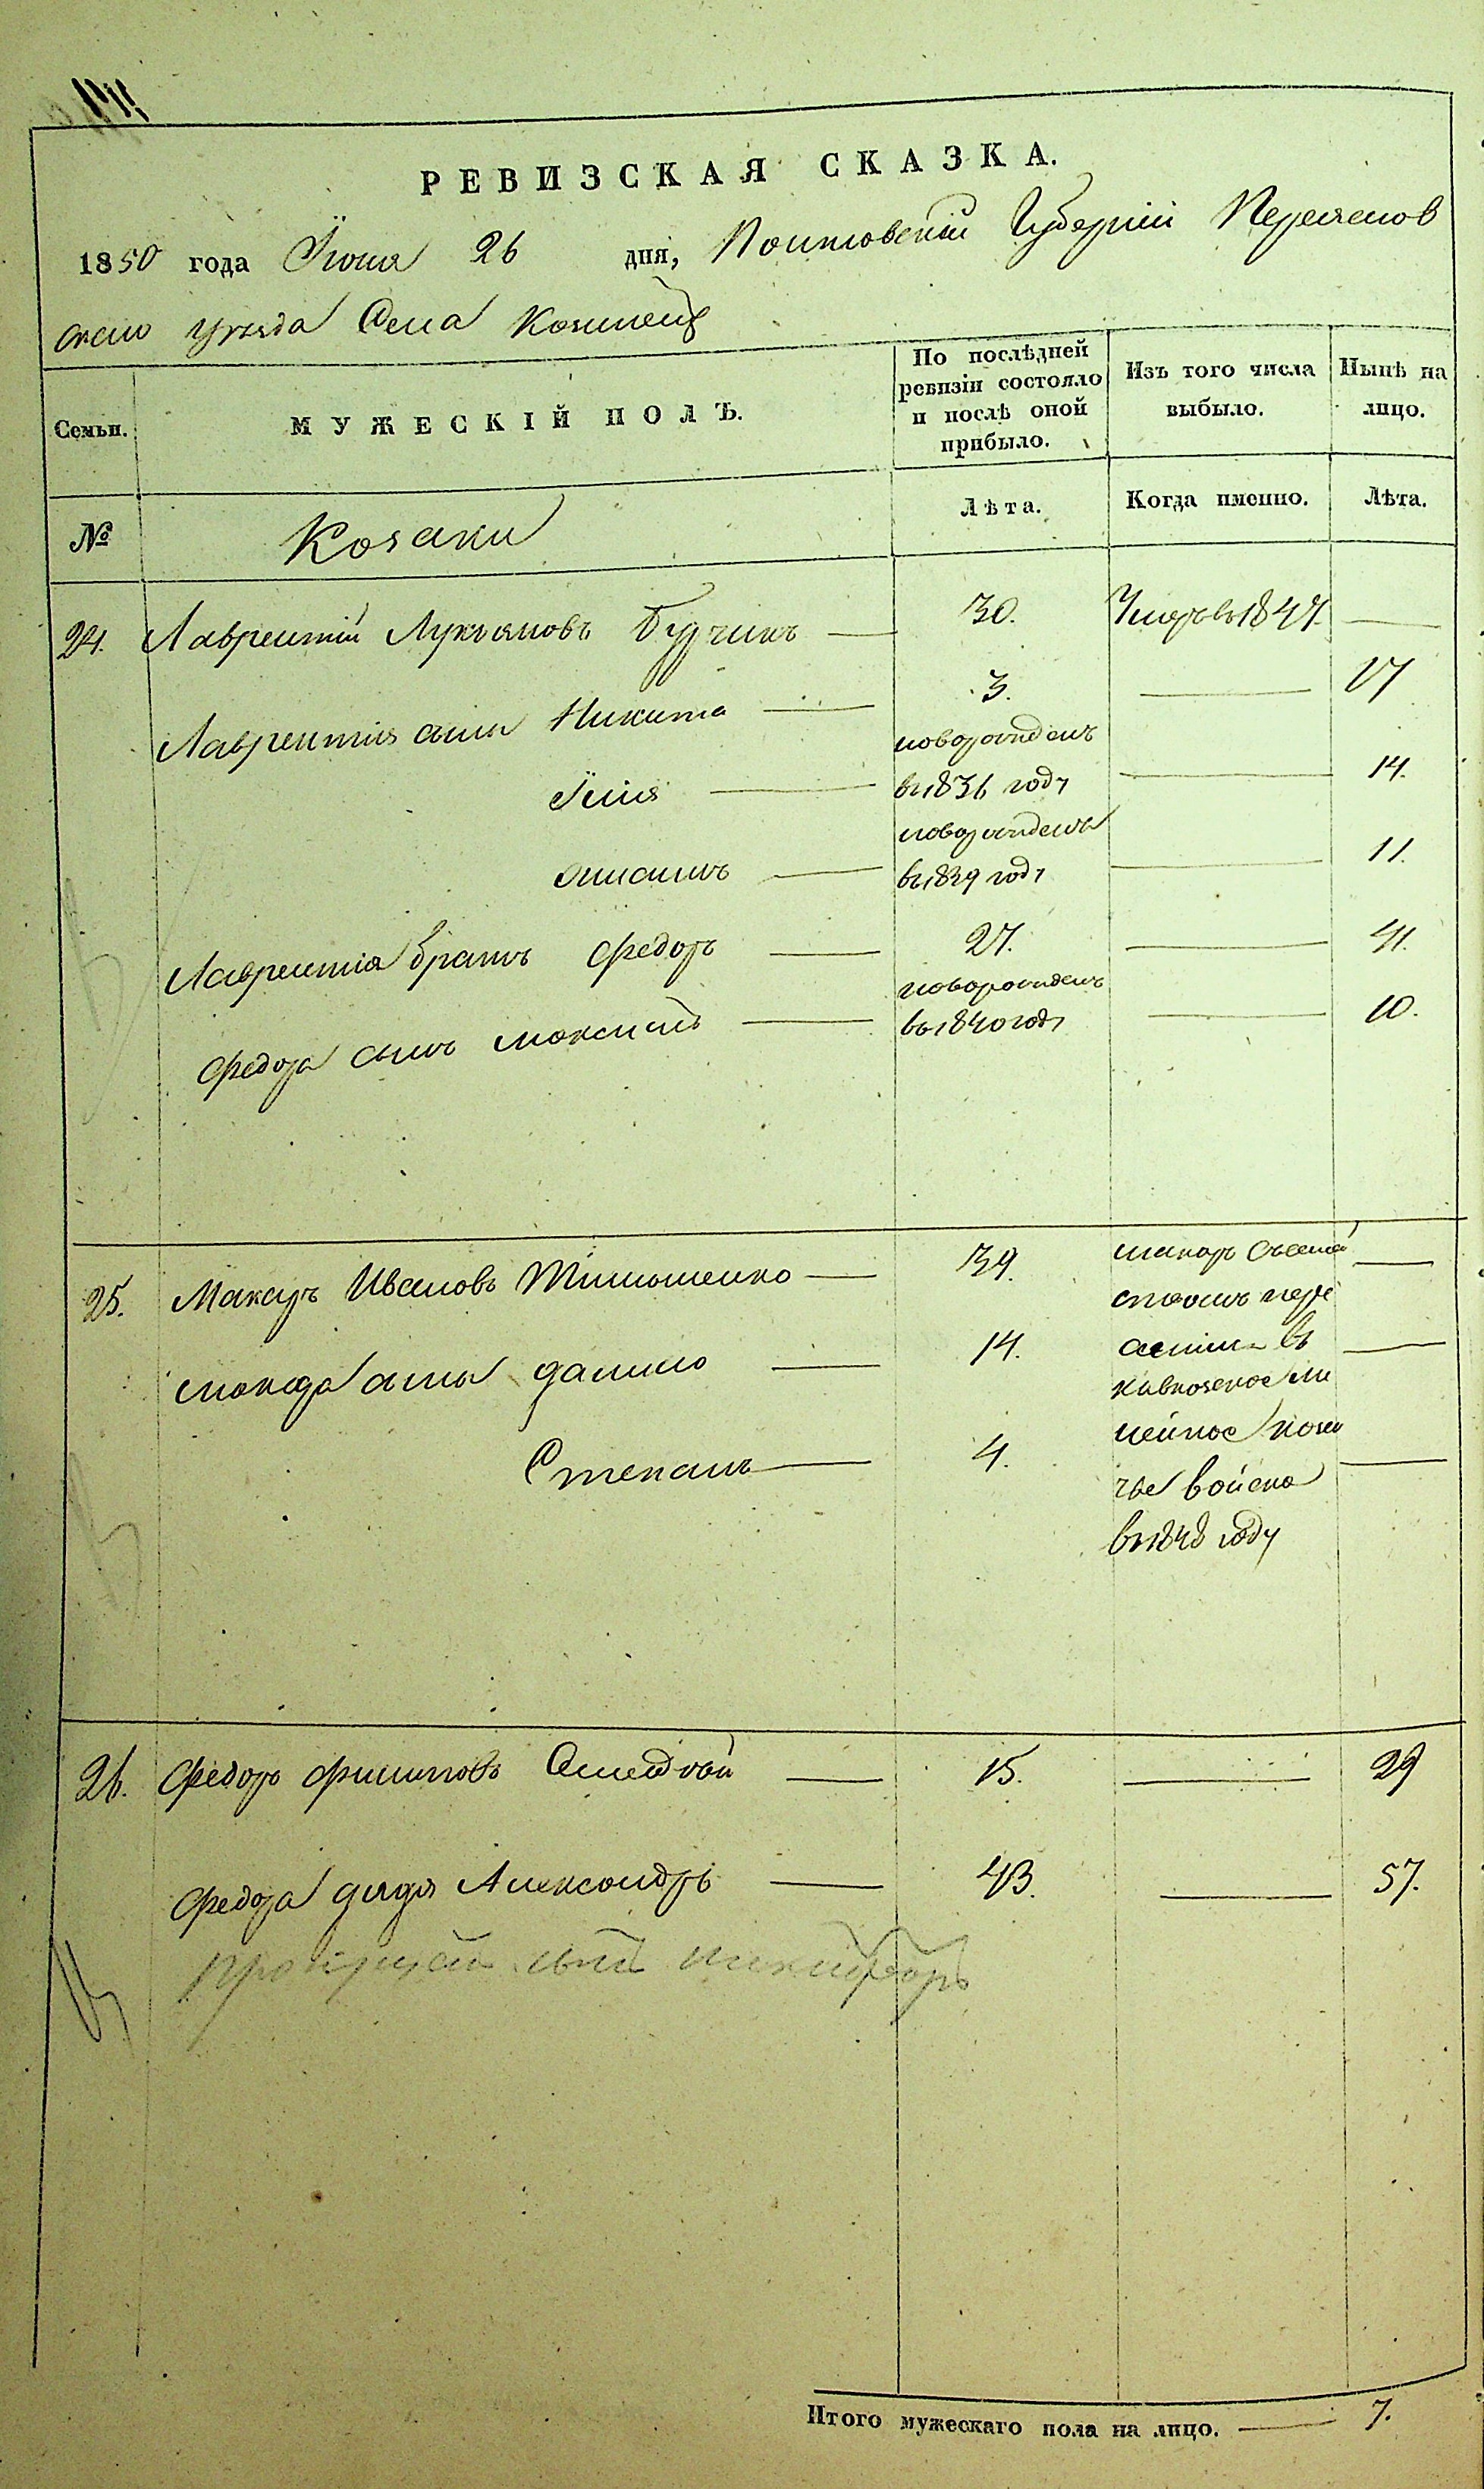 РЕВИЗСКАЯ СКАЗКА.
1850 года Іюня 26 дня, Полтавской Губерніи Переяслов
скаго уѣзда Села
Семьи. МУЖЕСКІЙ ПОЛЪ. По послѣдней ревизіи состояло и послѣ оной прибыло. Изъ того числа выбыло. Нынѣ на лицо.
№ Козаки Лѣта. Когда именно. Лѣта.
24. Лаврентій Лукьяновъ 30. Умеръ въ 1847.
Лаврентія сынъ Никита 3. 17
новорожденъ
въ 1836 году 14.
новорожденъ
въ 1839 году 11.
Лаврентія братъ Федоръ 27. 41.
новорожденъ
Федора сынъ Максимъ въ 1840 году 10.
25. Макаръ Ивановъ Тимошенко 39. Макаръ съ семей
ствомъ пере
Макара сынъ Данило 14. въ
кавказское ли
Степанъ 4. нейное коза
чье войско
въ 1848 году
26. Федоръ Филиповъ 15. 29
Федора дядя Александръ 43. 57.
сынъ Никифоръ
Итого мужескаго пола на лицо. 7.